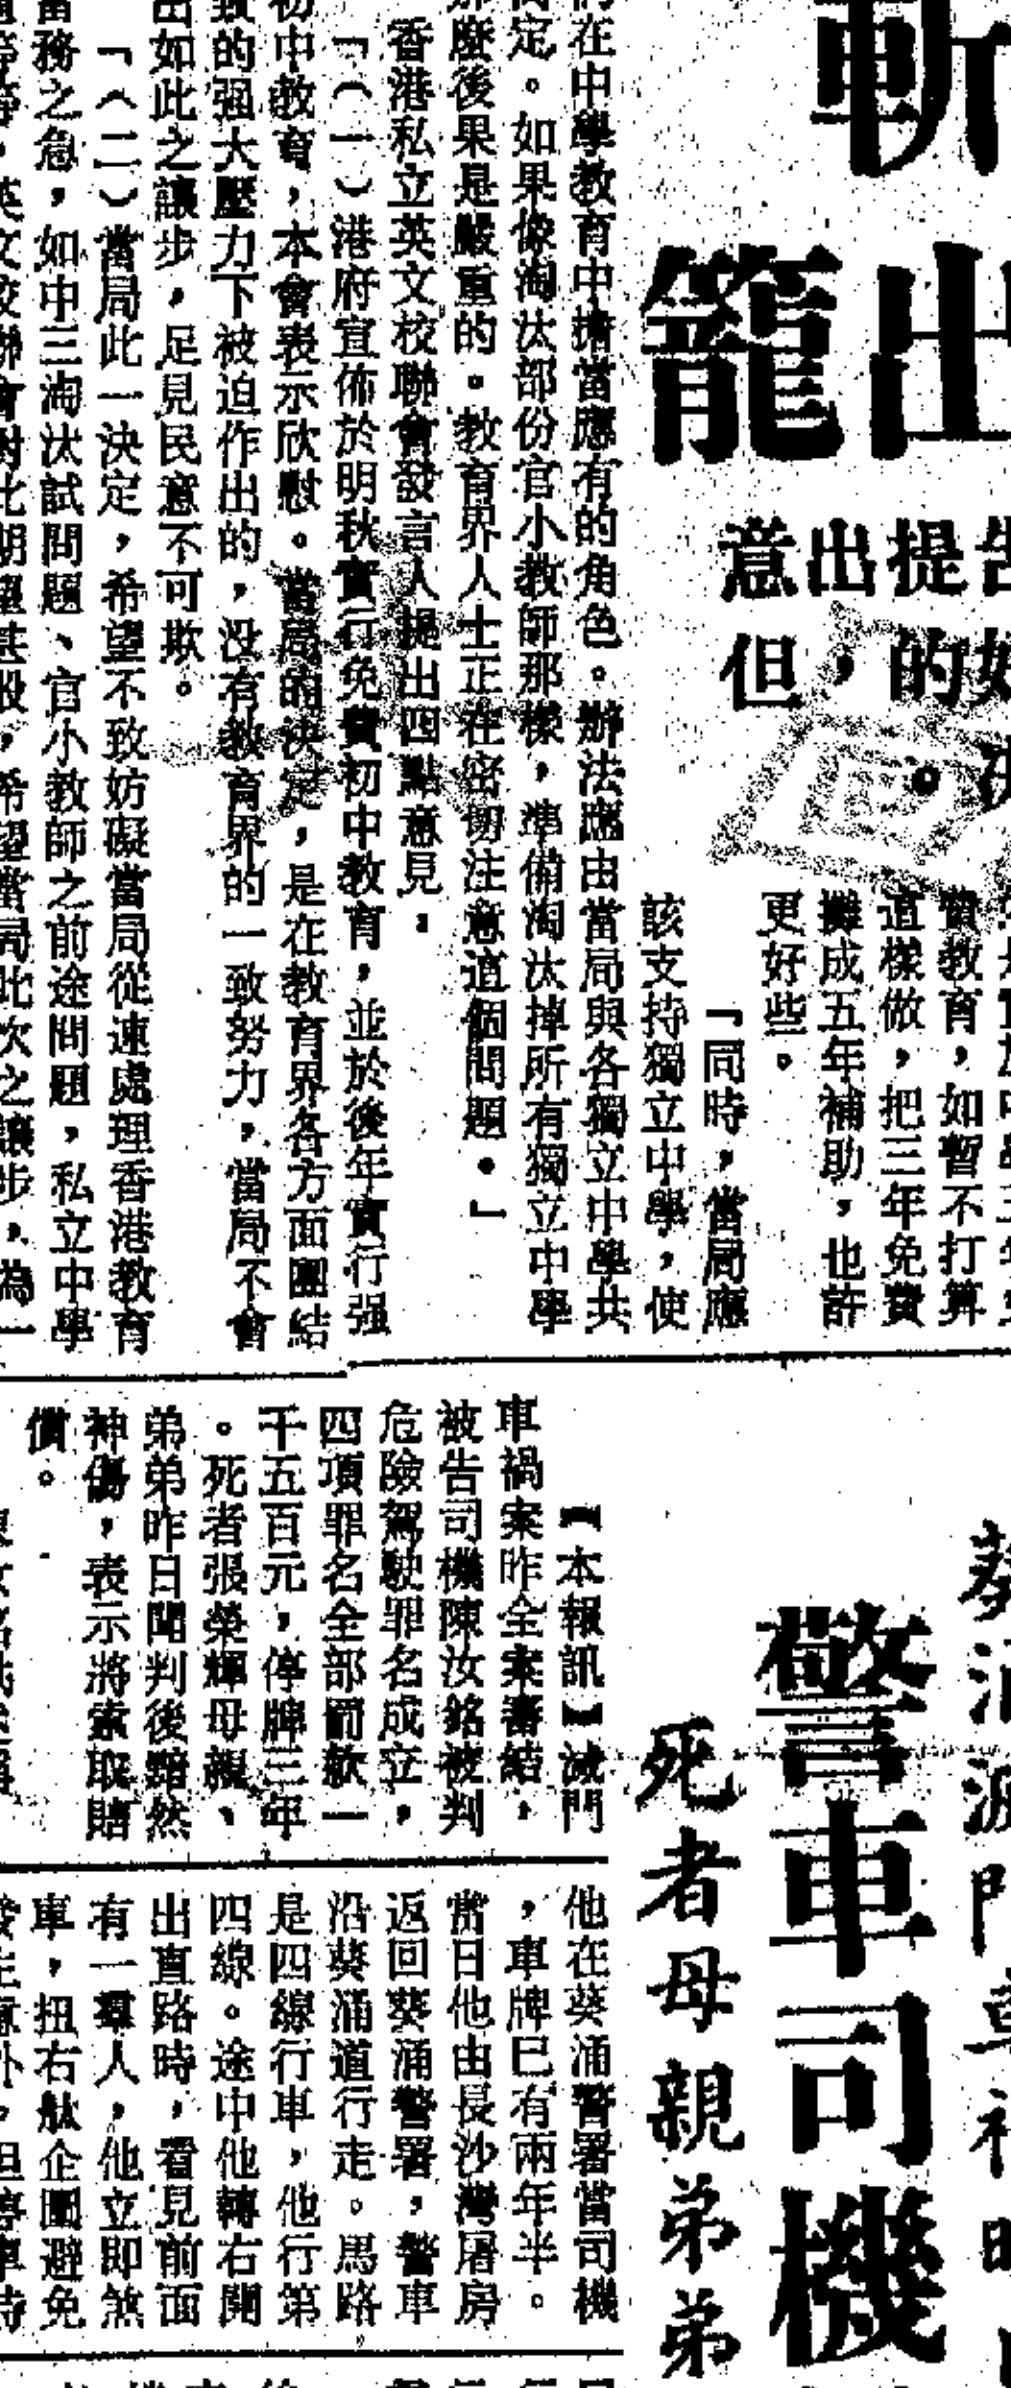 斬
出
籠
告
提
出
意
的
，但
費教育，如暫不打算
這樣做，把三年免費
攤成五年補助，也許
更好些。
「同時，當局應
該支持獨立中學，使
在中學教育中擔當應有的角色。辦法應由當局與各獨立中學共
定。如果像淘汰部份官小教師那樣，準備淘汰掉所有獨立中學
後果是嚴重的。教育界人士正在密切注意這個問題。」
香港私立英文校聯會發言人提出四點意見，
「（一）港府宣佈於明秋實行免費初中教育，並於後年實行强
初中教育，本會表示欣慰。當局的決定，是在教育界各方面團結
致的强大壓力下被迫作出的，没有教育界的一致努力，當局不會
出如此之讓步，足見民意不可欺。
「（二）當局此一決定，希望不致妨礙當局從速處理香港教育
當務之急，如中三淘汰試問題、官小教師之前途問題，私立中學
英文校聯會對此期望甚殷，希望當局此次之讓步，為一
葵涌滅門車禍昨
警車司機
死者母親弟弟
【本報訊】滅門
車禍案昨全案審結，
被告司機陳汝銘被判
危險駕駛罪名成立，
四項罪名全部罰款一
千五百元，停牌三年
。死者張榮輝母親、
弟弟昨日聞判後黯然
神傷，表示將索取賠
償。
他在葵涌警署當司機
，車牌已有兩年半。
當日他由長沙灣屠房
返回葵涌警署，警車
沿葵涌道行走。馬路
是四線行車，他行第
四線。途中他轉右開
出直路時，看見前面
有一羣人，他立即煞
車，扭右軚企圖避免